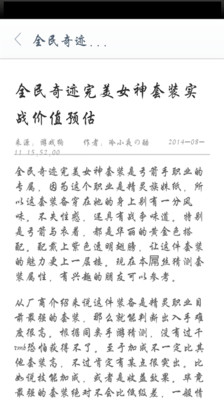 全民奇迹...
全民奇迹完美女神套装实
战价值预估
来源：游戏狗 作者：
2014-09-
11 15:57:00
全民奇迹完美女神套装是弓箭手职业的
专属，因为这个职业是精灵族妹纸，所
以这套装备穿在她的身上别有一分风
味，不失性感，还具有战争味道。特别
是弓箭与衣着，都是华丽的黄金色搭
配，配戴上紫色透明翅膀，让这件套装
的魅力更上一层楼，现在本屌丝精测套
装属性，有兴趣的朋友可以参考。
从厂商介绍来说这件装备是精灵职业目
前最强的套装，那么就能判断出入手难
度很高，根据同类手游猜测，没有过千
rmb恐怕获得不了，至于加成不一定比其
他套装高，不过肯定有某点很突出，比
如说技能加成，或者是收益效果，毕竟
最强的套装绝对不会比低级差，一般情